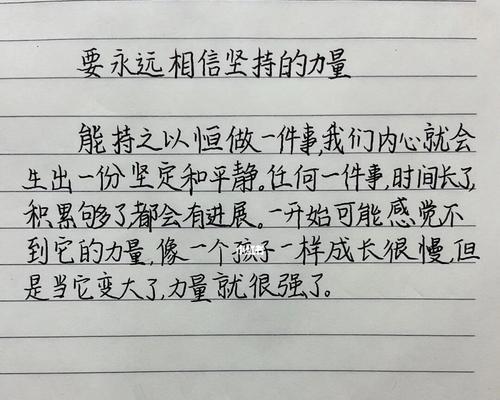 要永远相信坚持的力量
能持之以恒做一件事,我们内心就会
生出一份坚定和平静。任何一件事,时间长了,
积累够了都会有进展。一开始可能感觉不
到它的力量,像一个孩子一样成长很慢,但
是当它变大了,力量就很强了。